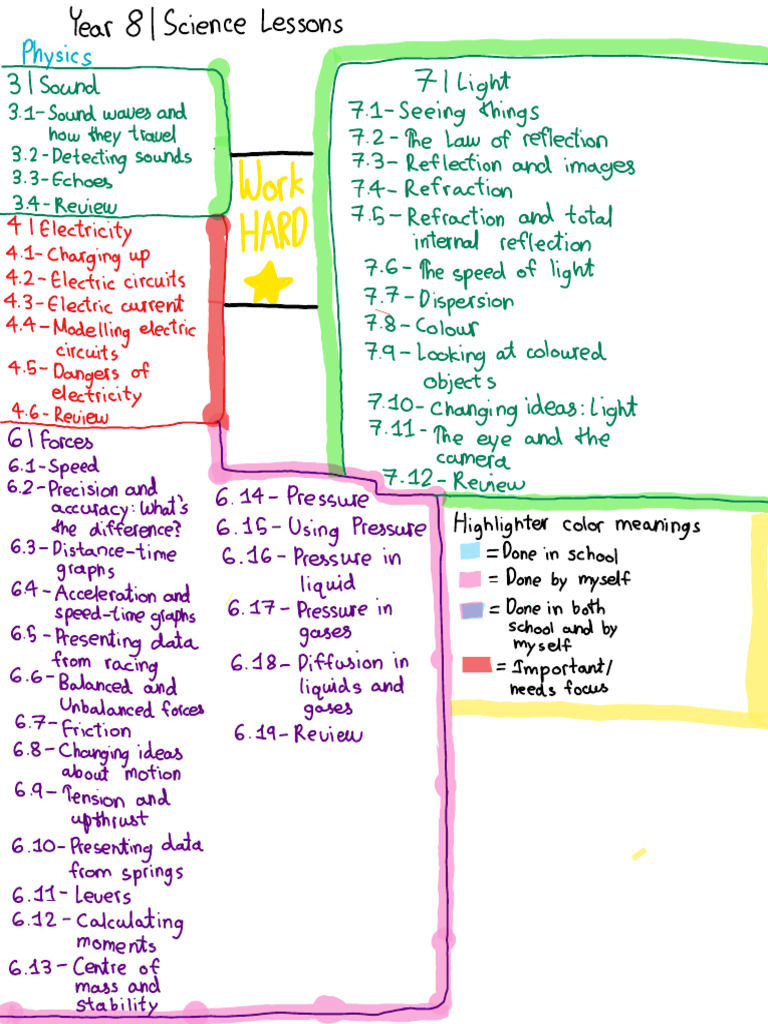 Year 8 | Science Lessons
Physics
3 | Sound
3.1-Sound waves and
how they travel
3.2-Detecting sounds
3.3-Echoes
3.4-Review
4 | Electricity
4.1-Charging up
4.2-Electric circuits
4.3-Electric current
4.4-Modelling electric
circuits
4.5-Dangers of
electricity
4.6-Review
6 | Forces
6.1-Speed
6.2-Precision and
accuracy: What's
the difference?
6.3-Distance-time
graphs
6.4-Acceleration and
speed-time graphs
6.5-Presenting data
from racing
6.6-Balanced and
Unbalanced forces
6.7-Friction
6.8-Changing ideas
about motion
6.9-Tension and
upthrust
6.10-Presenting data
from springs
6.11-Levers
6.12-Calculating
moments
6.13-Centre of
mass and
stability
6.14-Pressure
6.15-Using Pressure
6.16-Pressure in
liquid
6.17-Pressure in
gases
6.18-Diffusion in
liquids and
gases
6.19-Review
Work
HARD
7 | Light
7.1-Seeing things
7.2-The Law of reflection
7.3-Reflection and images
7.4-Refraction
7.5-Refraction and total
internal reflection
7.6-The speed of light
7.7-Dispersion
7.8-Colour
7.9-Looking at coloured
objects
7.10-Changing ideas: Light
7.11-The eye and the
camera
7.12-Review
Highlighter color meanings
= Done in school
= Done by myself
= Done in both
school and by
myself
= Important/
needs focus